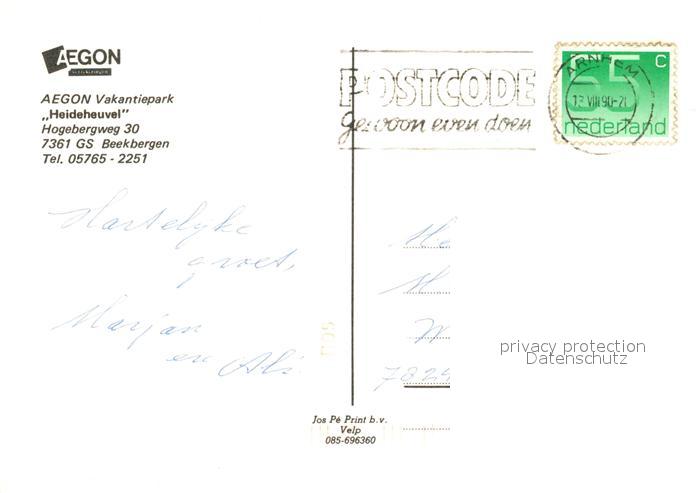 AEGON
AEGON Vakantiepark
„Heideheuvel”
Hogebergweg 30
7361 GS Beekbergen
Tel. 05765 - 2251
POSTCODE
gewoon even doen
ARNHEM
55 C
nederland
Hartelijke
groet,
Marjan
en
Jos Pé Print b.v.
Velp
085-696360
privacy protection
Datenschutz